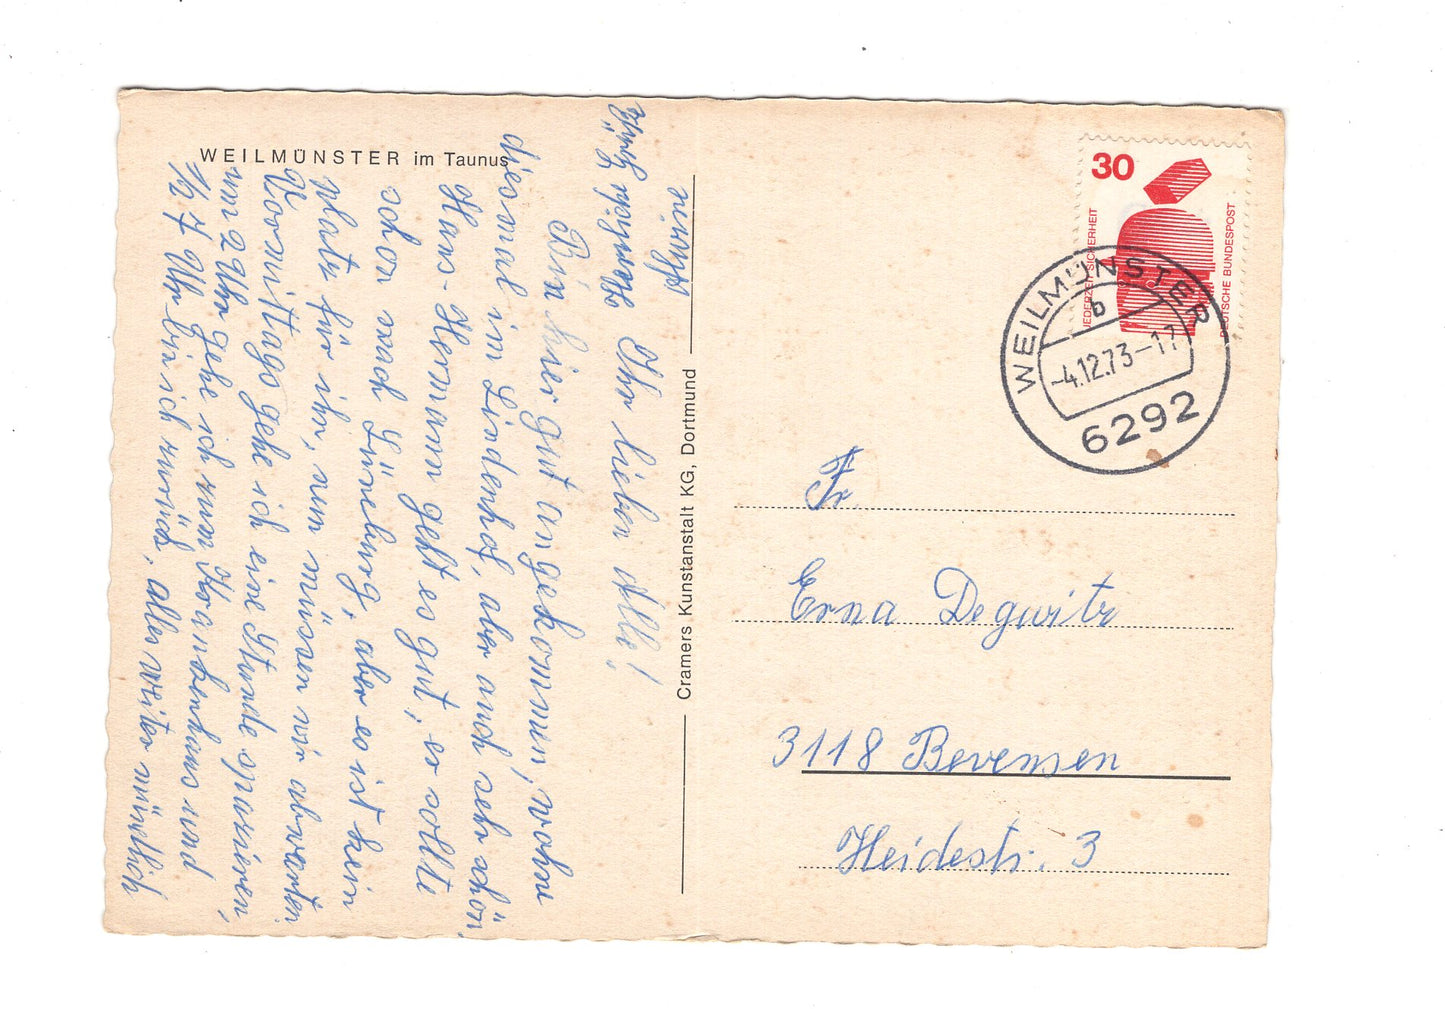 WEILMÜNSTER im Taunus
Ihr lieben Alle!
Bin hier gut angekommen, wohne
diesmal im Lindenhof, aber auch sehr schön,
Hans-Hermann geht es gut, er sollte
schon nach Lüneburg, aber es ist kein
platz für ihn, nun müssen wir abwarten.
Vormittags gehe ich eine Stunde spazieren,
um 2 Uhr gehe ich zum Krankenhaus und
1/2 7 Uhr bin ich zurück, alles weiter mündlich
Herzliche Grüße
Cramers Kunstanstalt KG, Dortmund
30
JEDERZEIT SICHERHEIT
DEUTSCHE BUNDESPOST
WEILMÜNSTER
b
-4.12.73-17
6292
Fr.
Erna Degwitz
3118 Bevensen
Heidestr. 3